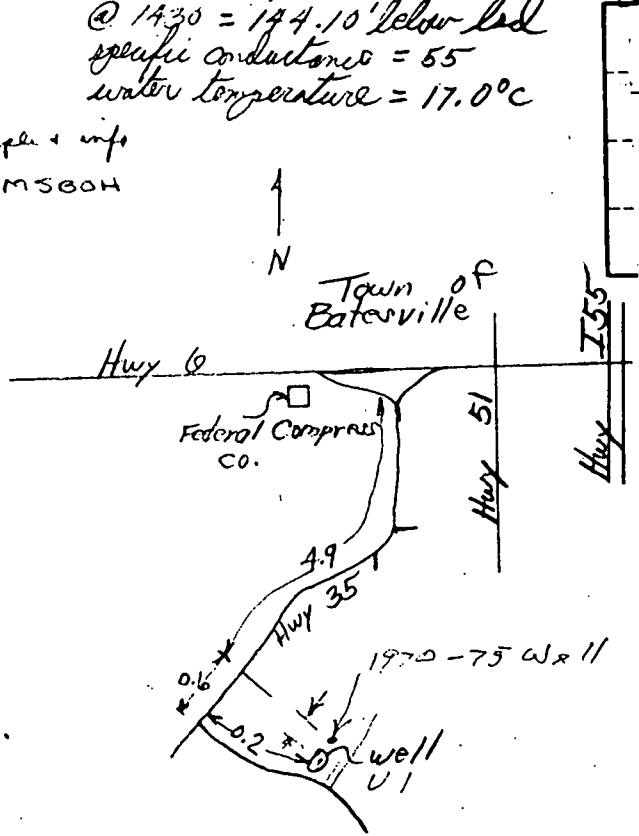 @ 1430 = 144.10' below lsd
specific conductance = 55
water temperature = 17.0°C
ple + info
MSBOH
N
Town of
Batesville
Hwy 6
I55
Hwy
Federal Compress
Co.
Hwy 51
4.9
Hwy 35
1970-75 Well
0.6
0.2
well
U1